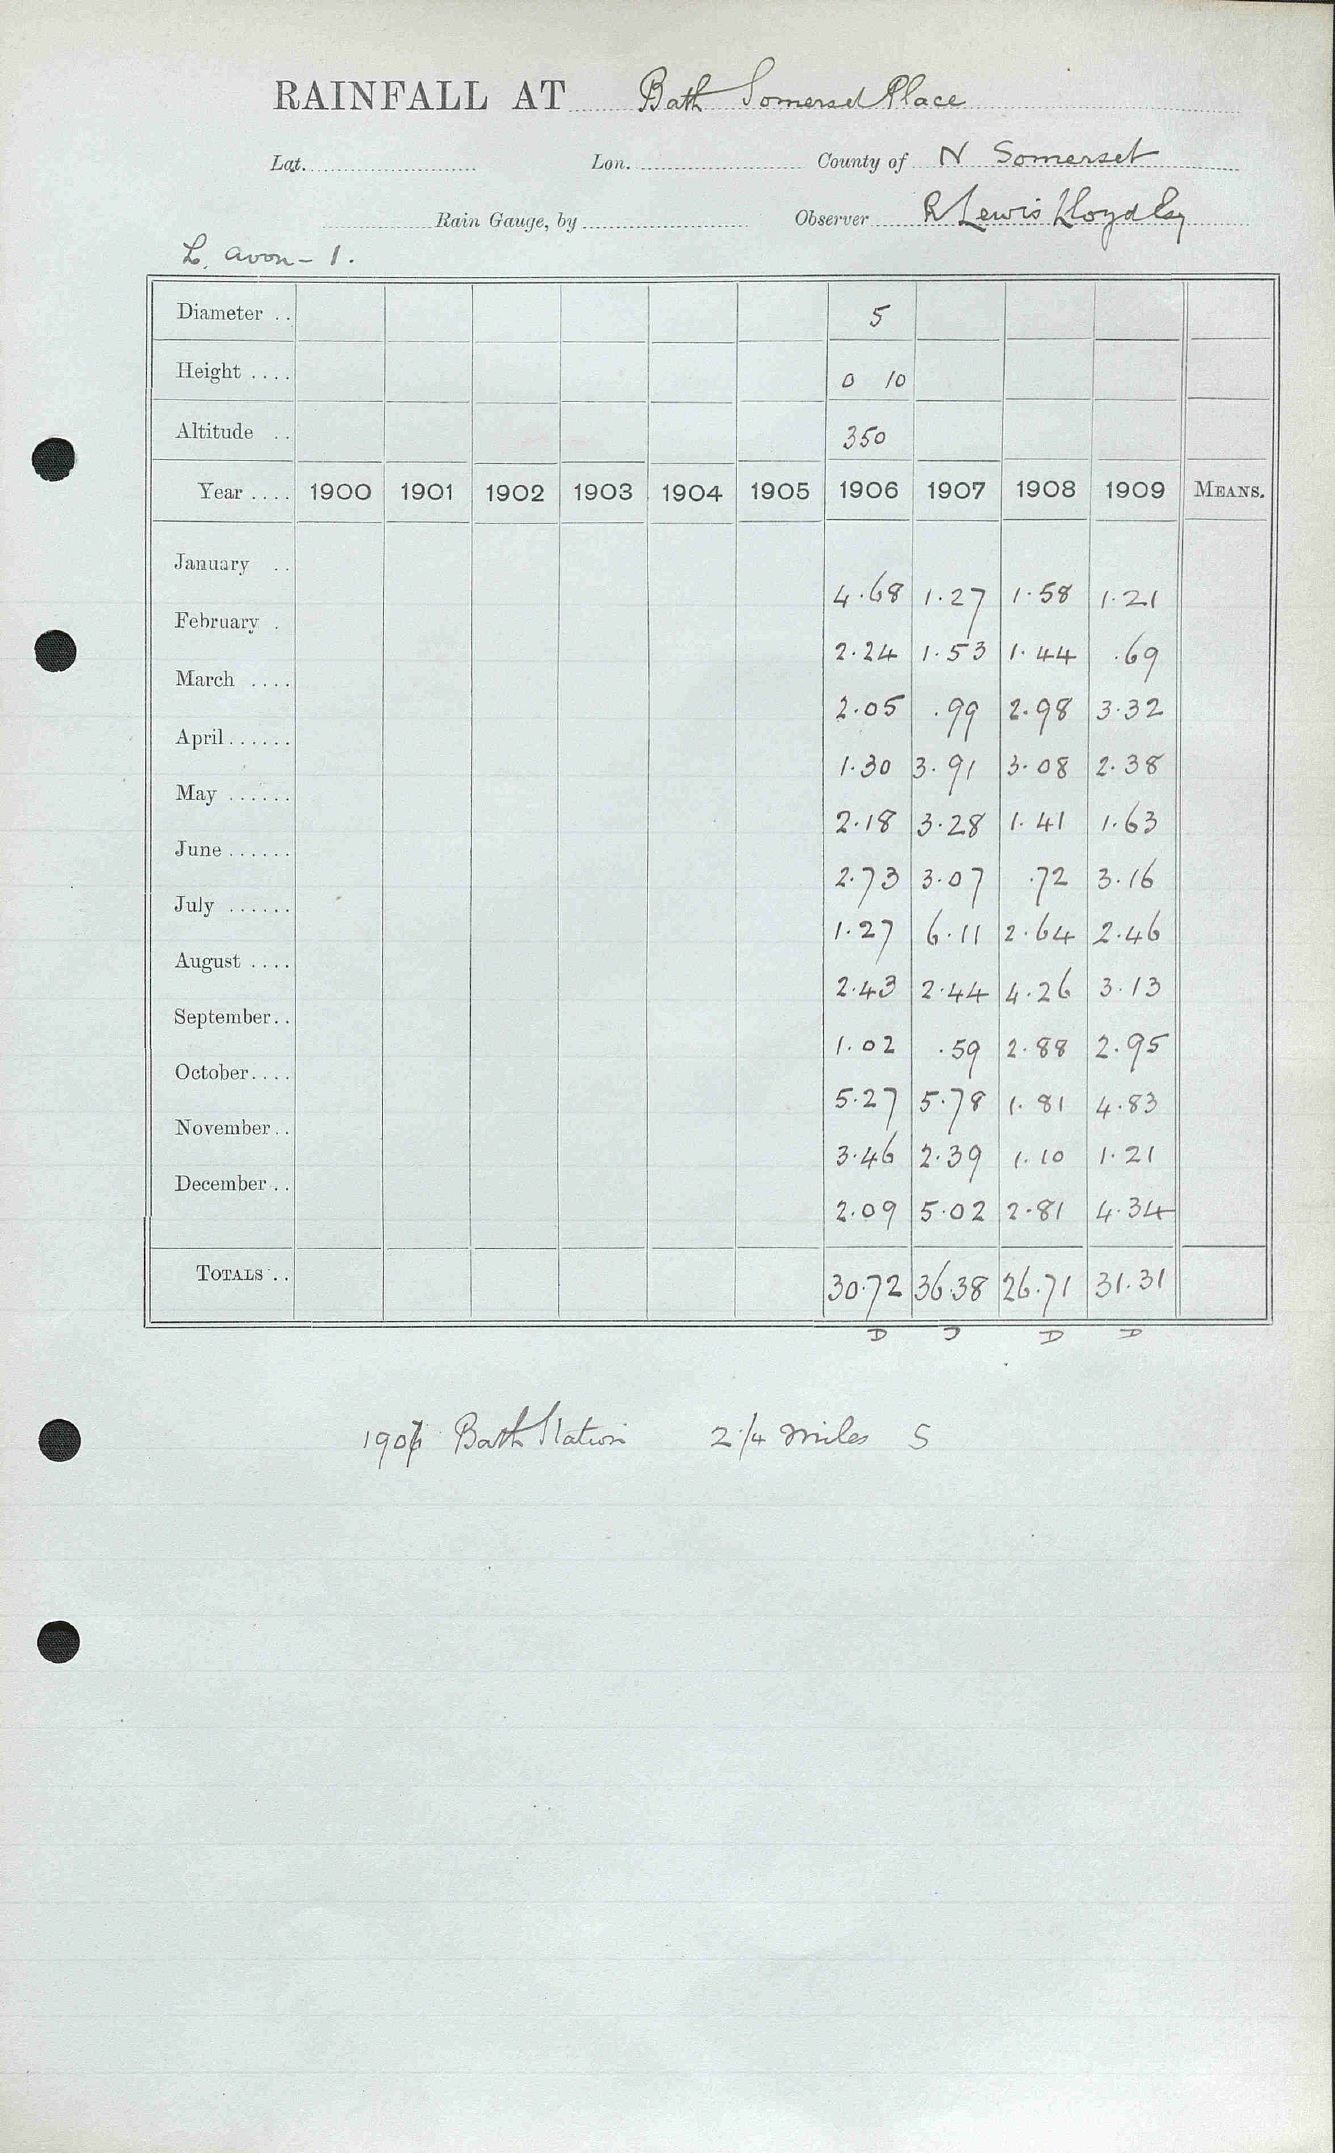 RAINFALL AT Bath Somerset Place
Lat. Lon. County of N Somerset
Rain Gauge, by Observer R Lewis Lloyd Esq
L. Avon - 1.
Diameter .. 5
Height .... 0 10
Altitude .. 350
Year .... 1900 1901 1902 1903 1904 1905 1906 1907 1908 1909 MEANS.
January .. 4.68 1.27 1.58 1.21
February . 2.24 1.53 1.44 .69
March .... 2.05 .99 2.98 3.32
April ...... 1.30 3.91 3.08 2.38
May ...... 2.18 3.28 1.41 1.63
June ...... 2.73 3.07 .72 3.16
July ...... 1.27 6.11 2.64 2.46
August .... 2.43 2.44 4.26 3.13
September .. 1.02 .59 2.88 2.95
October .... 5.27 5.78 1.81 4.83
November .. 3.46 2.39 1.10 1.21
December .. 2.09 5.02 2.81 4.34
TOTALS .. 30.72 36.38 26.71 31.31
D D D
Bath Station 2 1/4 miles S